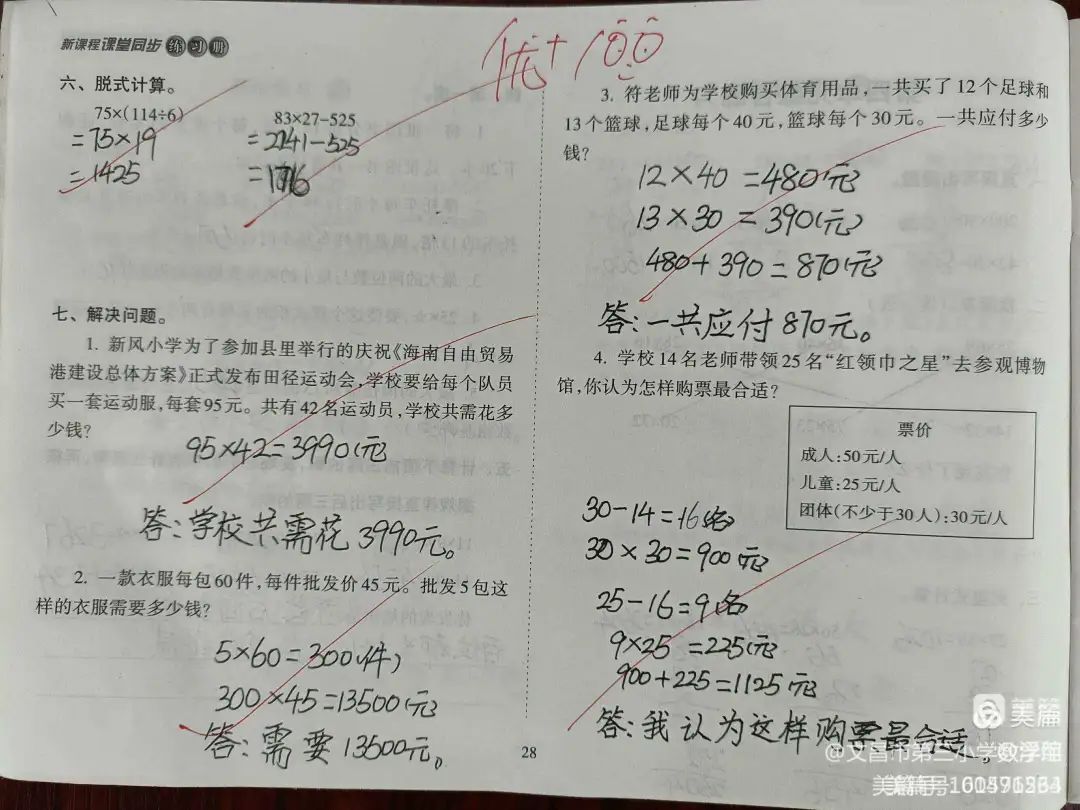 新课程课堂同步练习册
优+ 100
六、脱式计算。
75×(114÷6)
=75×19
=1425
83×27-525
=2241-525
=1716
七、解决问题。
1. 新风小学为了参加县里举行的庆祝《海南自由贸易
港建设总体方案》正式发布田径运动会,学校要给每个队员
买一套运动服,每套95元。共有42名运动员,学校共需花多
少钱?
95×42=3990(元)
答:学校共需花3990元。
2. 一款衣服每包60件,每件批发价45元。批发5包这
样的衣服需要多少钱?
5×60=300(件)
300×45=13500(元)
答:需要13500元。
28
3. 符老师为学校购买体育用品,一共买了12个足球和
13个篮球,足球每个40元,篮球每个30元。一共应付多少
钱?
12×40=480(元)
13×30=390(元)
480+390=870(元)
答:一共应付870元。
4. 学校14名老师带领25名“红领巾之星”去参观博物
馆,你认为怎样购票最合适?
票价
成人:50元/人
儿童:25元/人
团体(不少于30人):30元/人
30-14=16(名)
30×30=900(元)
25-16=9(名)
9×25=225(元)
900+225=1125(元)
答:我认为这样购票最合适
美篇
@文昌市第三小学数学
美篇号